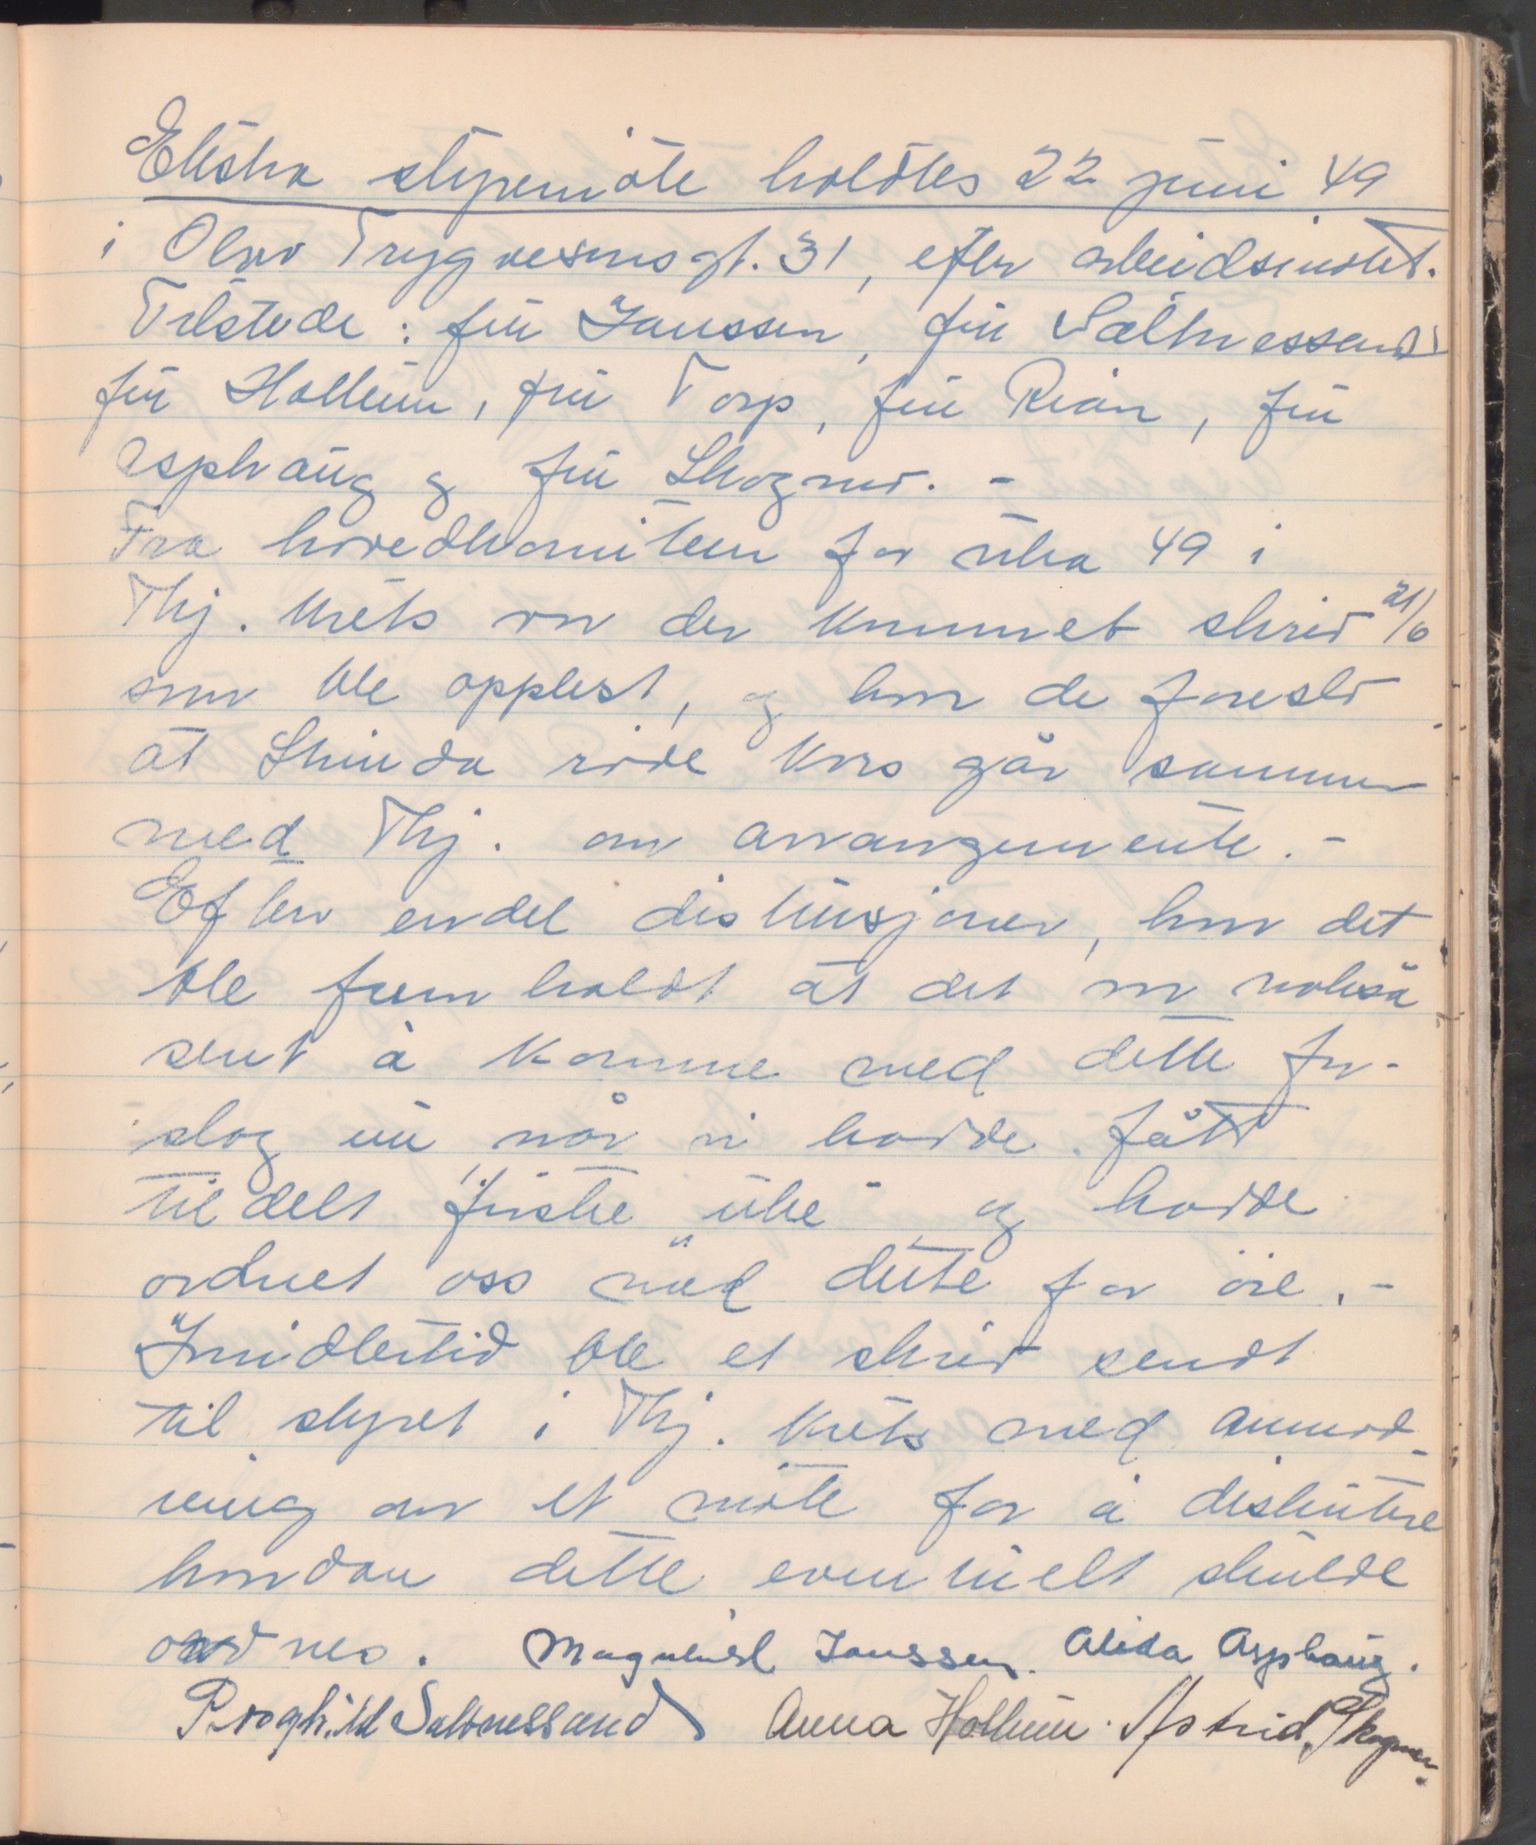 Ekstra styremöte holdtes 22 juni 49
i Olav Trygvesonsgt. 31, efter arbeidsmötet.
Tilstede: fru Janssen, fru Sæthnessand
fru Hollum, fru Torp, fru Rian, fru
Asphaug og fru Skogmo. -
Fra hovedkomiteen for uka 49 i
Thj. krets var der kommet skriv 21/6
som ble opplest, og hvor de foreslo
at Strinda röde kors går sammen
med Thj. om arrangementet. -
Efter endel diskusjoner, hvor det
ble fremholdt at det var nokså
sent å komme med dette for-
slag nu når vi hadde fått
tildelt "fiske uke" og hadde
ordnet oss med dette for öie. -
Imidlertid ble et skriv sendt
til styret i Thj. krets med anmod-
ning om et möte for å diskutere
hvordan dette eventuelt skulde
ordnes. Magnhild Janssen. Alida Asphaug.
Ragnhild Saltnessand Anna Hollum. Astrid Skogmo.